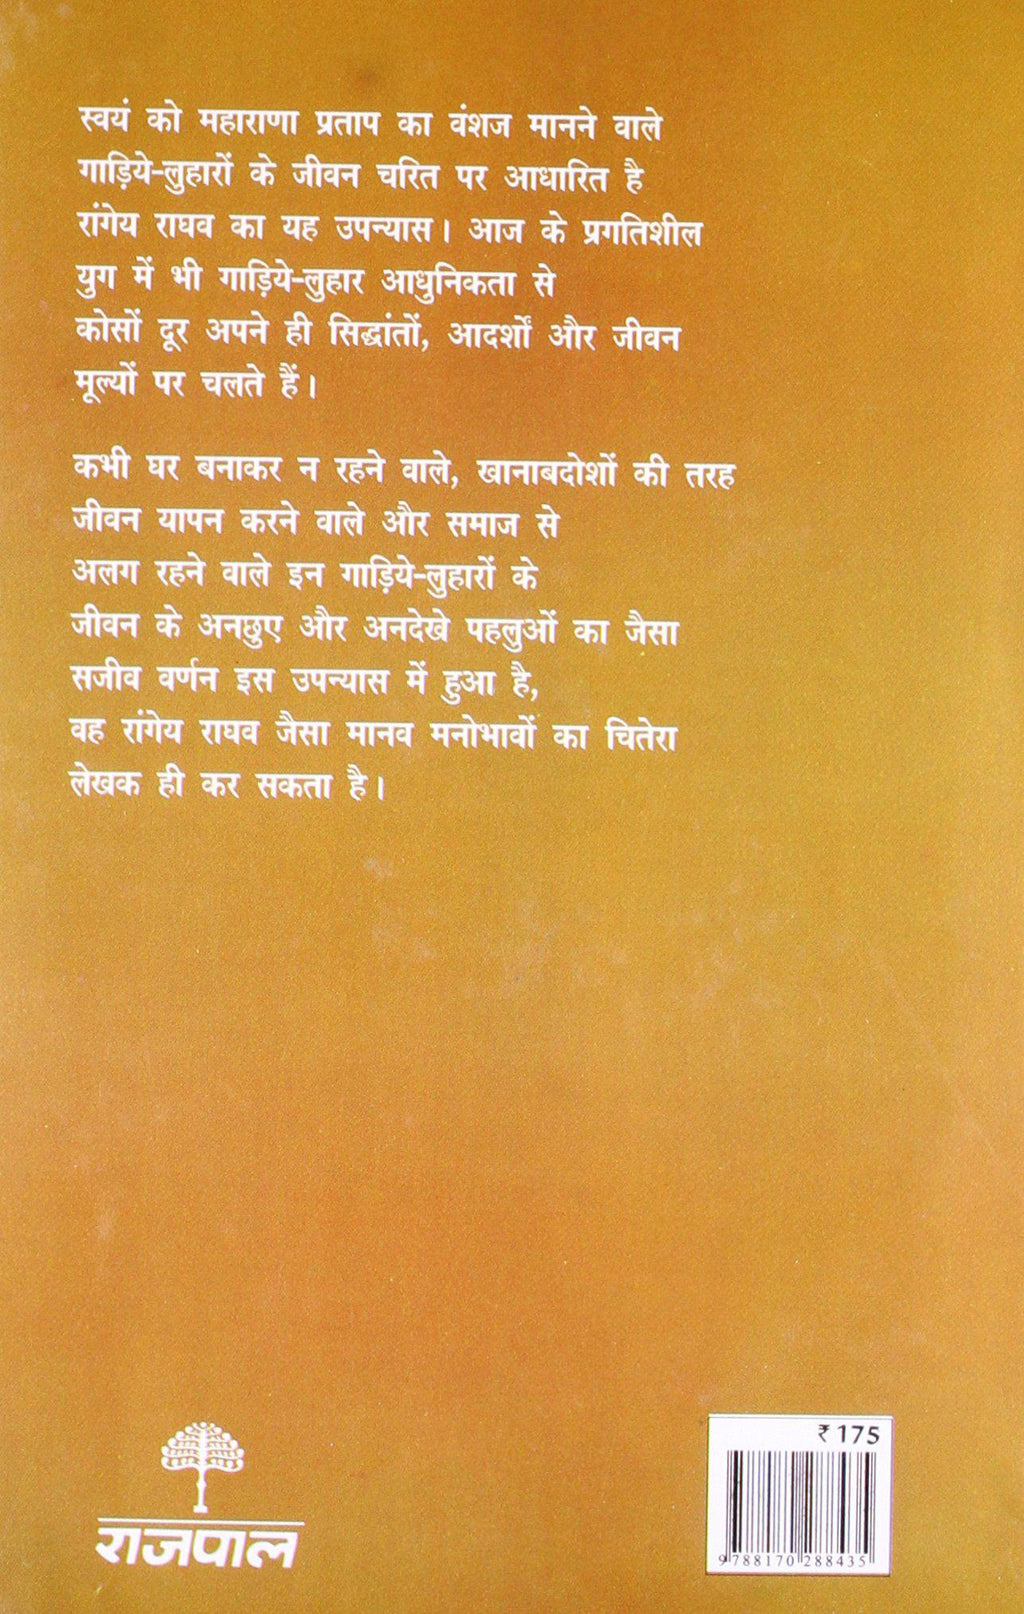 स्वयं को महाराणा प्रताप का वंशज मानने वाले
गाड़िये-लुहारों के जीवन चरित पर आधारित है
रांगेय राघव का यह उपन्यास। आज के प्रगतिशील
युग में भी गाड़िये-लुहार आधुनिकता से
कोसों दूर अपने ही सिद्धांतों, आदर्शों और जीवन
मूल्यों पर चलते हैं।
कभी घर बनाकर न रहने वाले, खानाबदोशों की तरह
जीवन यापन करने वाले और समाज से
अलग रहने वाले इन गाड़िये-लुहारों के
जीवन के अनछुए और अनदेखे पहलुओं का जैसा
सजीव वर्णन इस उपन्यास में हुआ है,
वह रांगेय राघव जैसा मानव मनोभावों का चितेरा
लेखक ही कर सकता है।
₹ 175
9 788170 288435
राजपाल